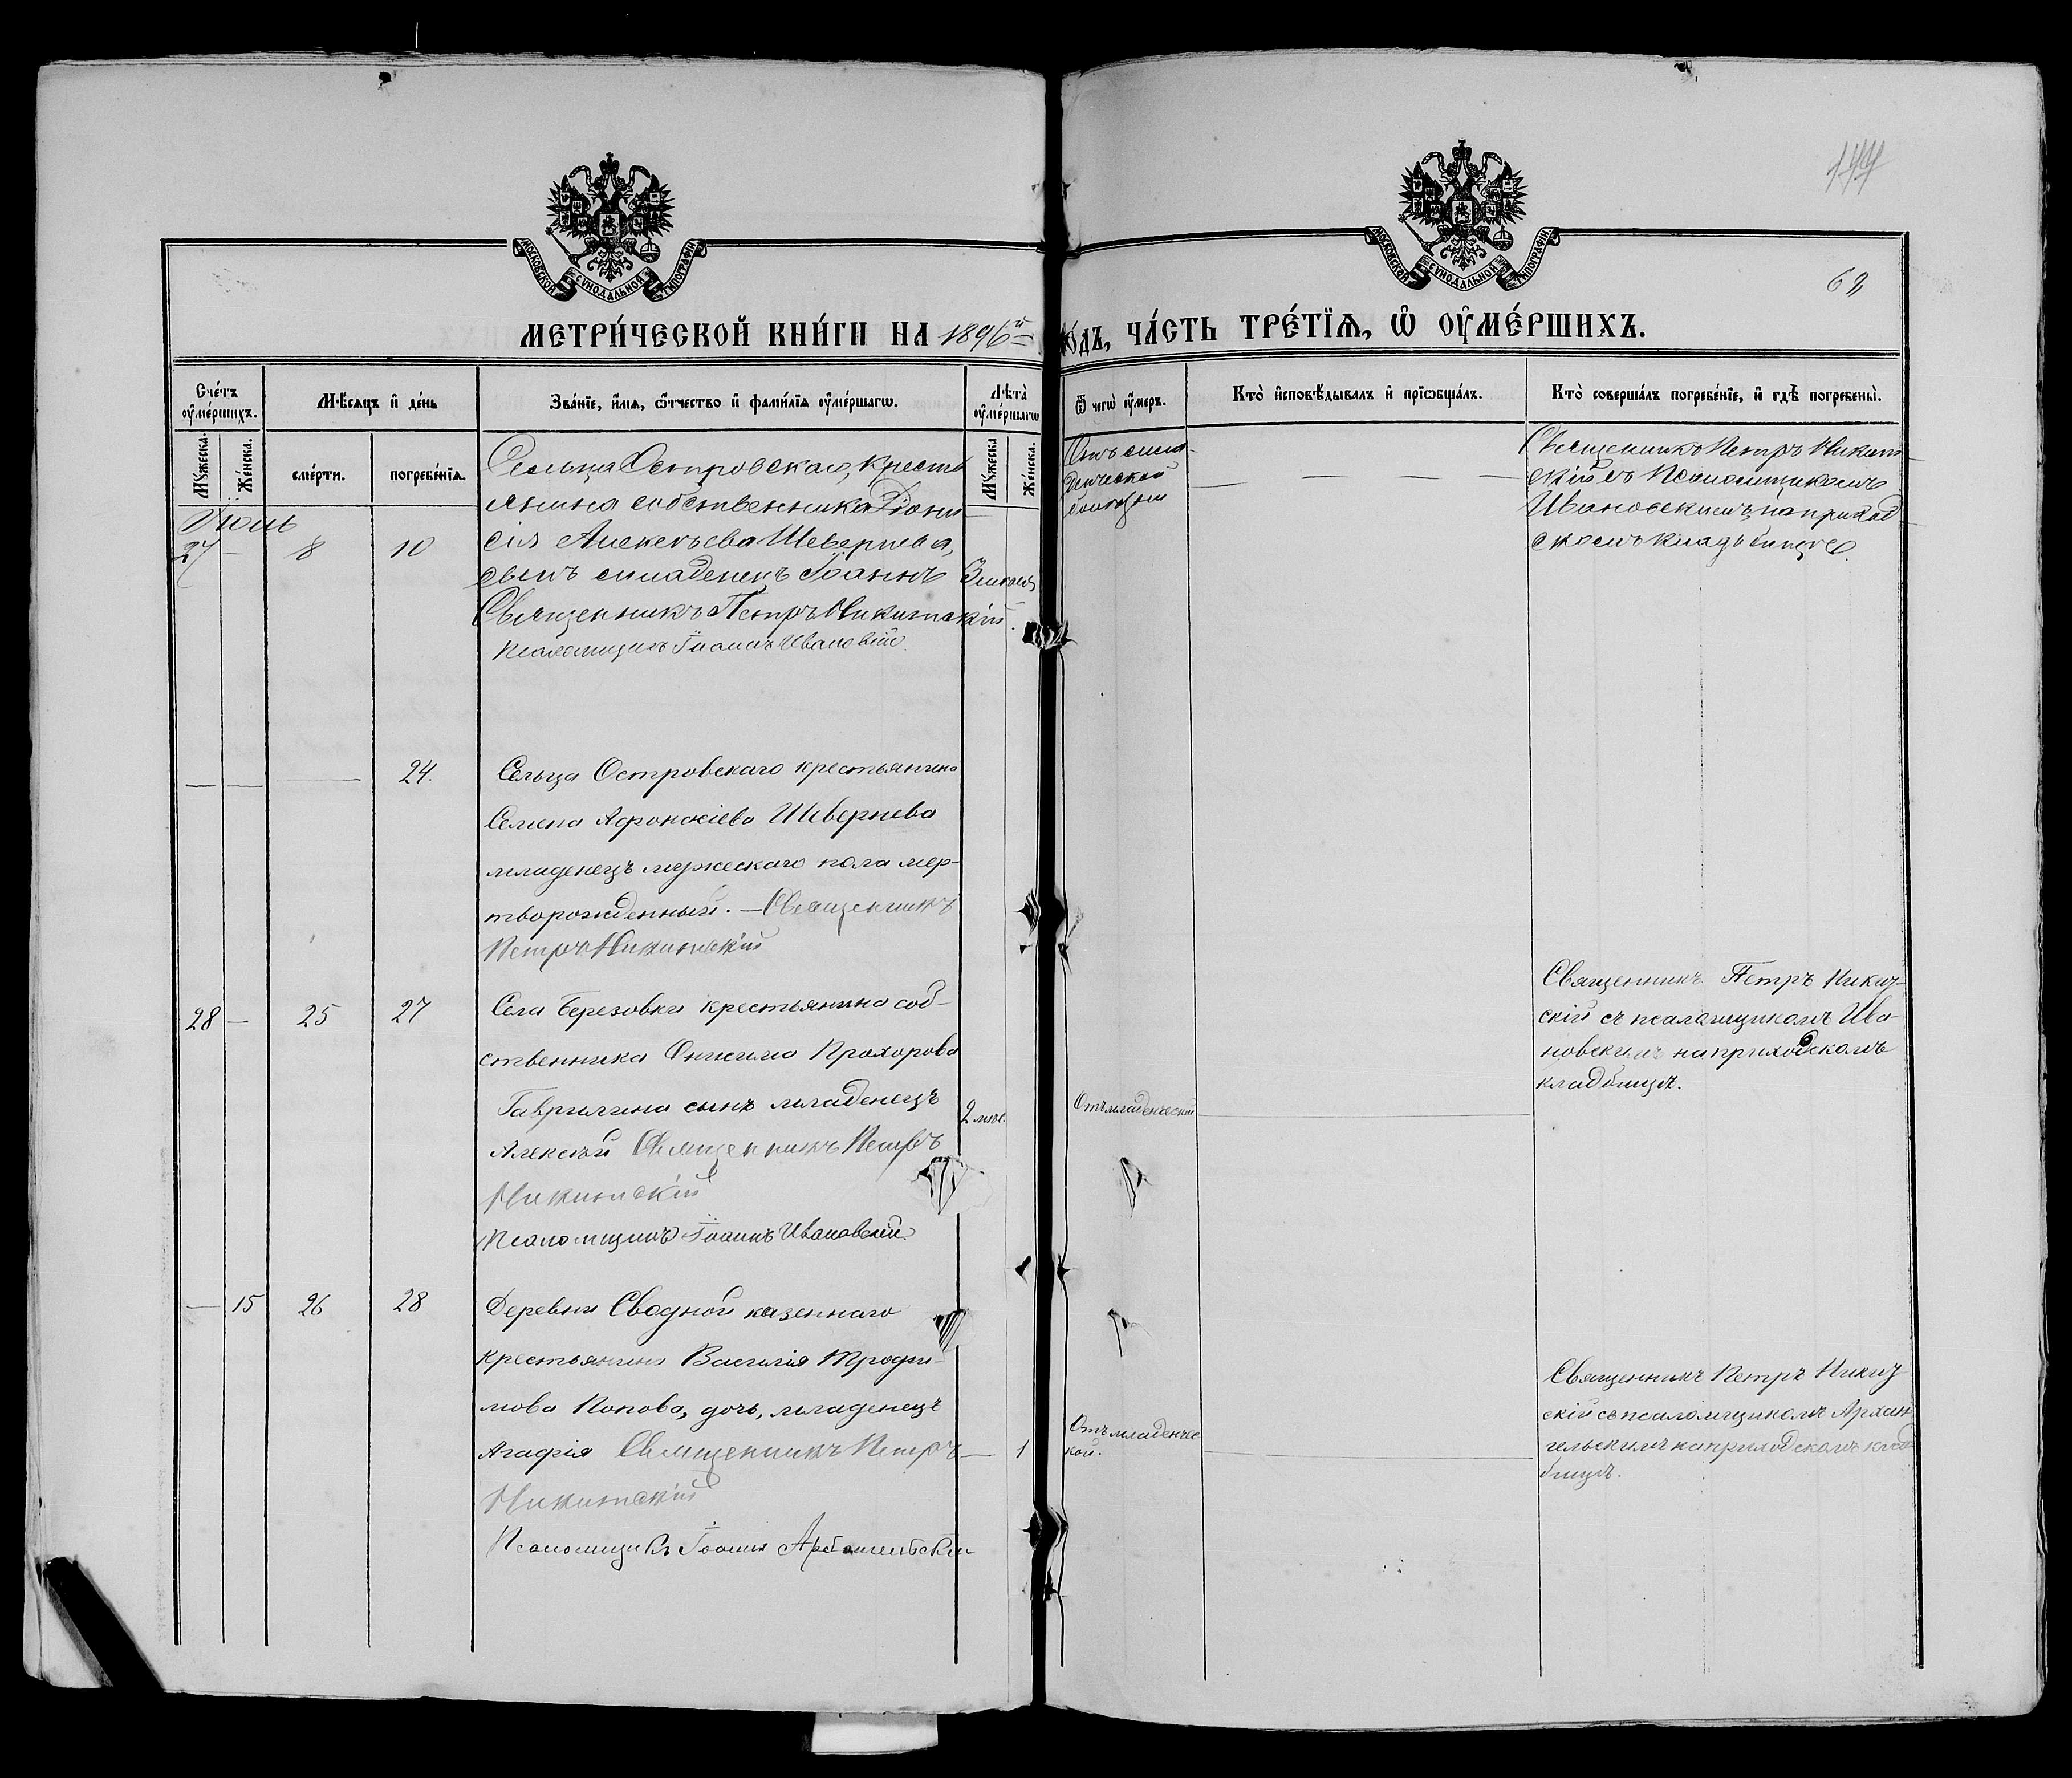 144
МОСКОВСКОЙ СѴНОДАЛЬНОЙ ТИПОГРАФІИ
МОСКОВСКОЙ СѴНОДАЛЬНОЙ ТИПОГРАФІИ
62
МЕТРИ́ЧЕСКОЙ КНИ́ГИ НА 1896й
го́дъ, ЧА́СТЬ ТРЕ́ТЇѦ, Ѡ ОУ҆МЕ́РШИХЪ.
Сче́тъ оу҆ме́ршихъ.
Мѣ́сяцъ и҆ де́нь
Зва́нїе, и҆́мѧ, ѻ҆́тчество и҆ фами́лїѧ оу҆ме́ршагѡ.
Лѣта̀ оу҆ме́ршагѡ
Ѿ чегѡ̀ оу҆́меръ.
Кто̀ и҆сповѣ́дывалъ и҆ прїѡбща́лъ.
Кто̀ соверша́лъ погребе́нїе, и҆ гдѣ̀ погребены̀.
Мꙋ́жеска.
Же́нска.
сме́рти.
погребе́нїѧ.
Мꙋ́жеска
Же́нска.
Іюль
27 — 8 10
Сельца Островскаго, кресть
янина собственника Діони-
сія Алексѣева Шевернева,
сынъ младенецъ Іоаннъ
Священникъ Петръ Никитскій.
Псаломщикъ Іоаннъ Ивановскій.
— — — —
Священникъ Петръ Никит
скій съ Псаломщикомъ
Ивановскимъ на приход
скомъ кладбищѣ.
— — — 24.
Сельца Островскаго крестьянина
Семена Афонасіева Шевернева
младенецъ мужескаго пола мер-
творожденный. — Священникъ
Петръ Никитскій
28 — 25 27
Села Березовки крестьянина соб-
ственника Онисима Прохорова
Гаврилина сынъ младенецъ
Алексѣй Священникъ Петръ
Никитскій
Псаломщикъ Іоаннъ Ивановскій
2 мѣс.
Отъ младенческой
Священникъ Петръ Никит-
скій съ псаломщикомъ Ива-
новскимъ на приходскомъ
кладбищѣ.
— 15 26 28
Деревни Сводной казеннаго
крестьянина Василія Трофи-
мова Попова, дочь, младенецъ
Агафія Священникъ Петръ
Никитскій
Псаломщикъ Іоаннъ Архангельскій
— 1
Отъ младенчес
кой.
Священникъ Петръ Никит
скій съ псаломщикомъ Архан
гельскимъ на приходскомъ клад
бищѣ.